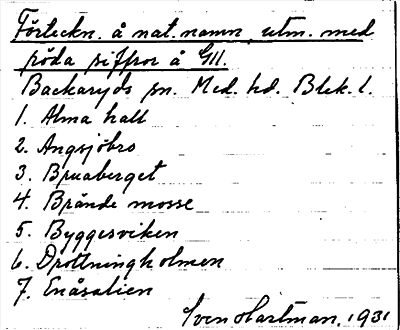 Förteckn. å nat.namn, utm. med
röda siffror å GII.
Backaryds sn. Med. hd. Blek. l.
1. Alma hall
2. Angsjöbro
3. Bruaberget
4. Brände mosse
5. Byggesviken
6. Drottningholmen
7. Enåsalien
Sven Hartman, 1931